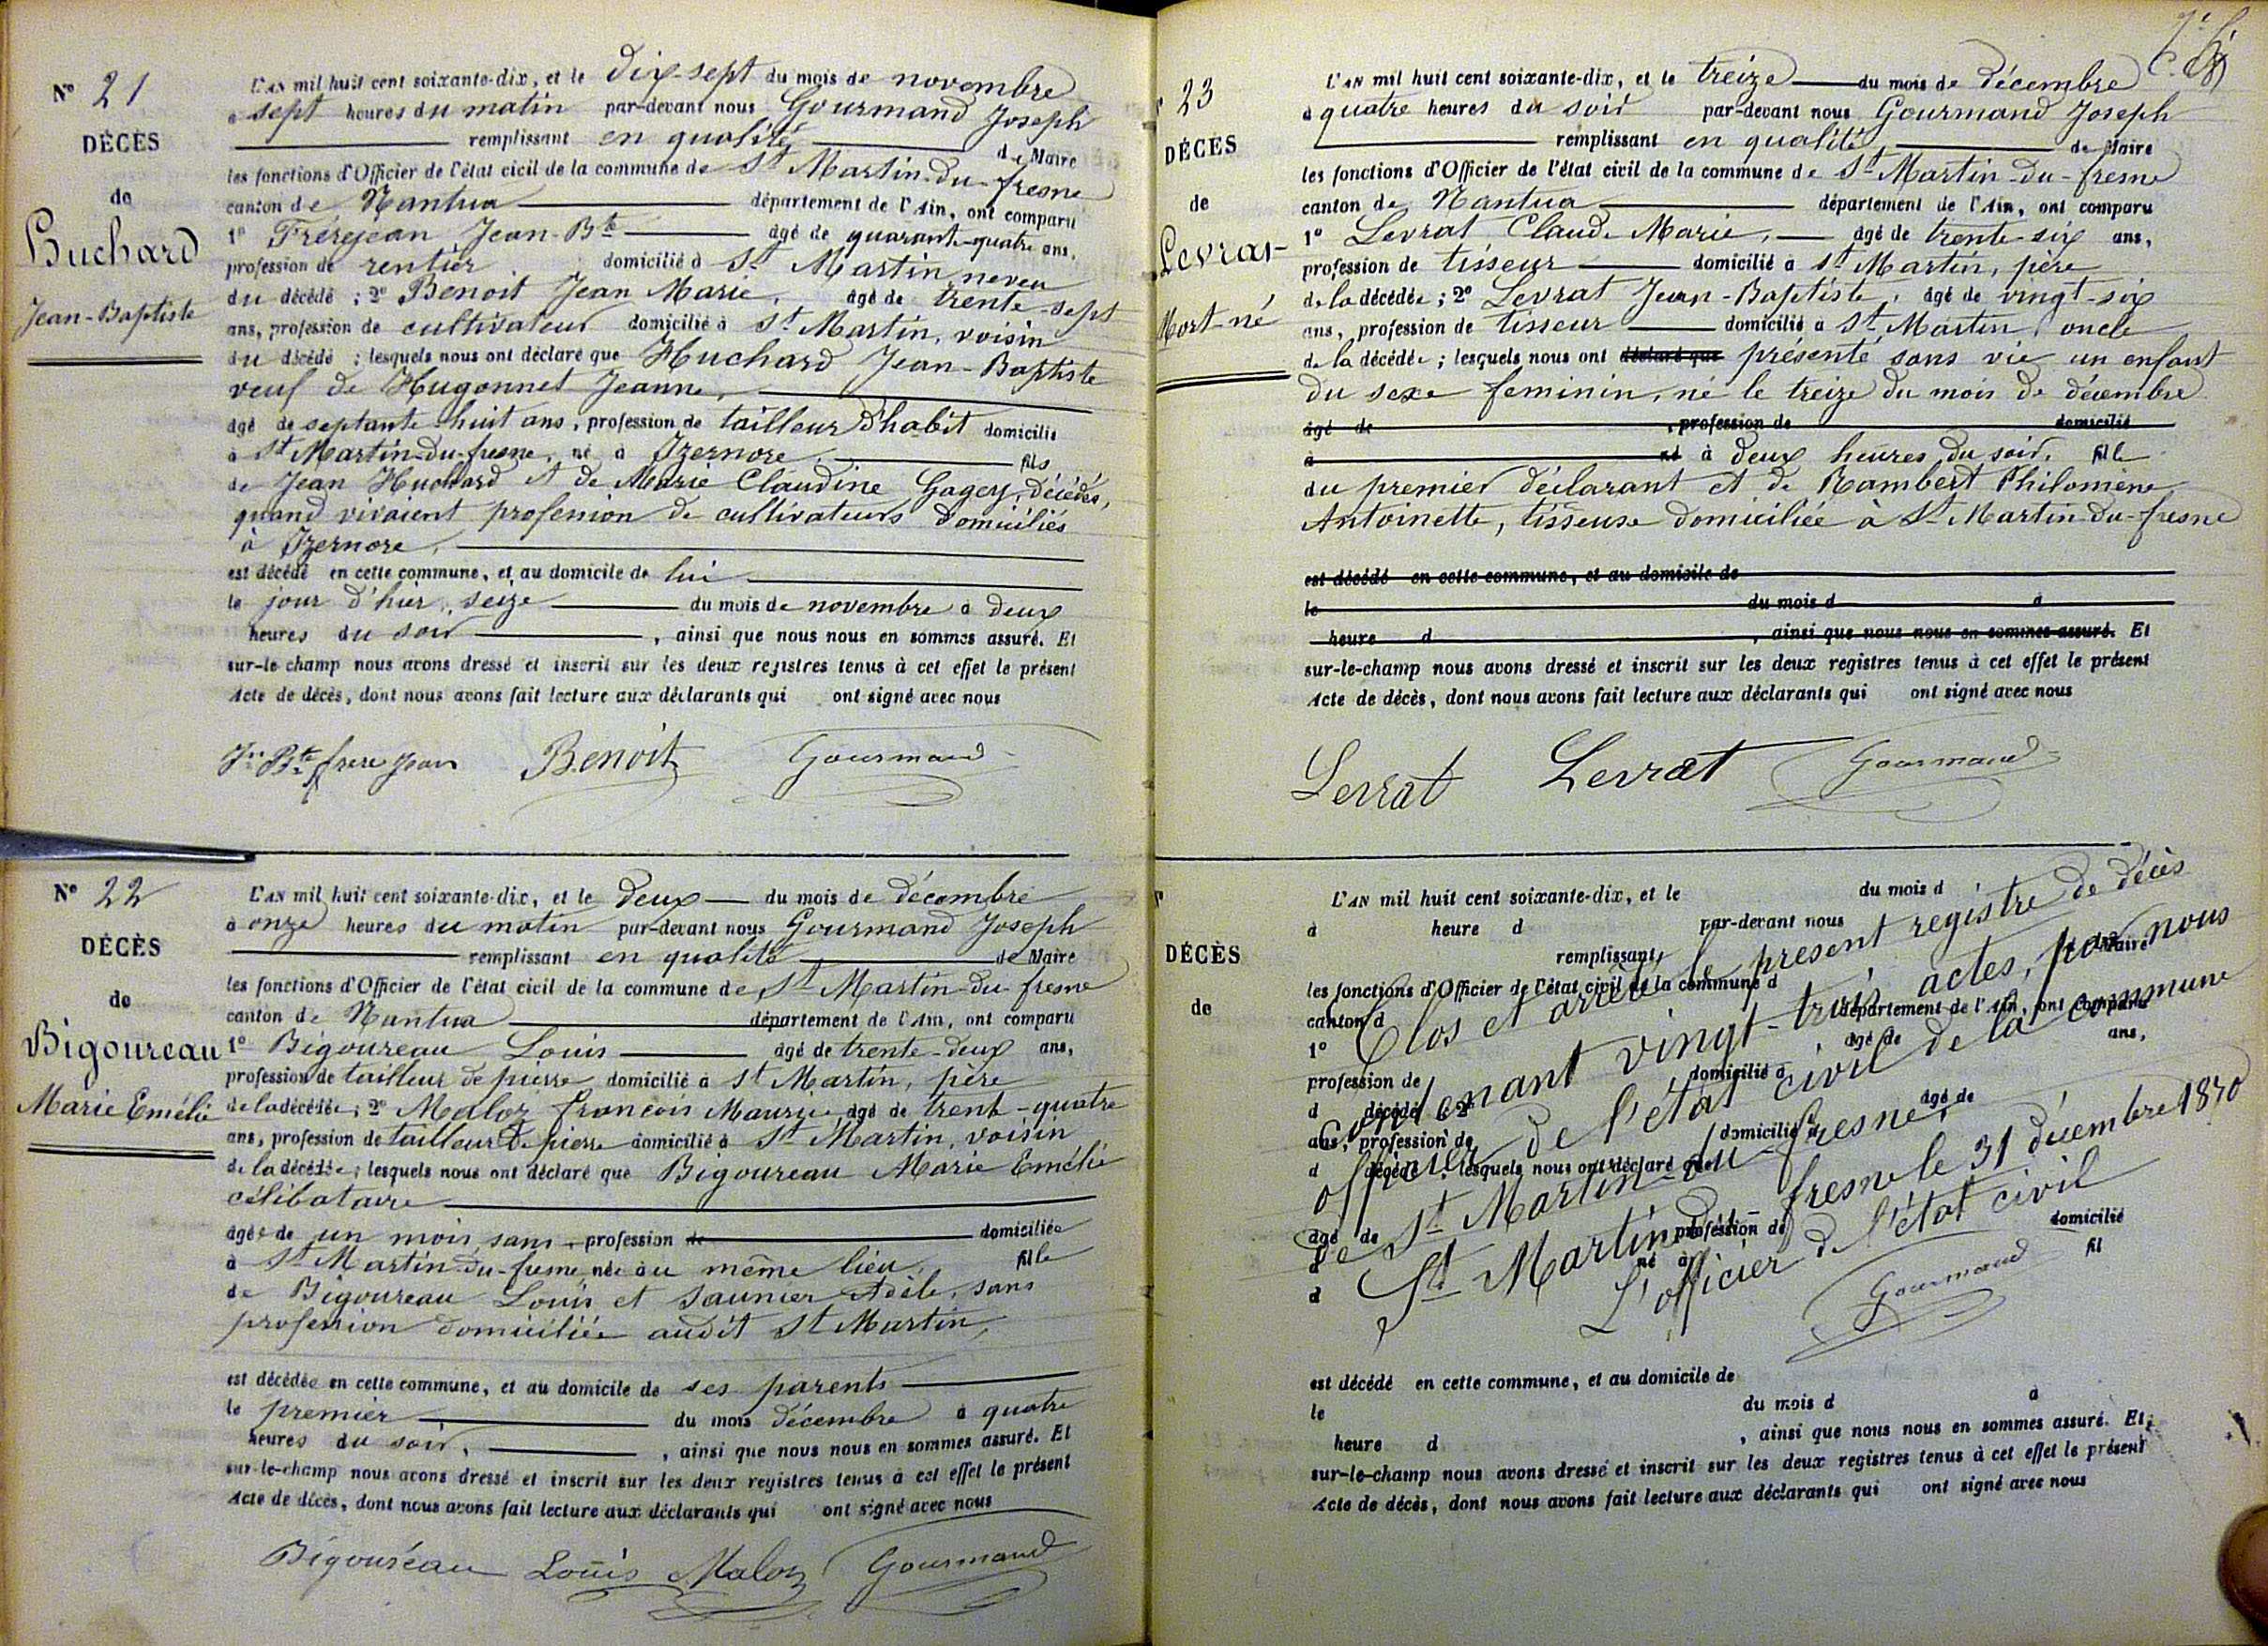 N° 21
DÉCÈS
de
Huchard
Jean-Baptiste
L'AN mil huit cent soixante-dix, et le dix-sept du mois de novembre
à sept heures du matin par-devant nous Gourmand Joseph
remplissant en qualité de Maire
les fonctions d'Officier de l'état civil de la commune de St Martin-du-fresne
canton de Nantua département de l'Ain, ont comparu
1° Frérejean Jean-Bte âgé de quarante-quatre ans,
profession de rentier domicilié à St Martin neveu
du décédé ; 2° Benoit Jean Marie, âgé de trente-sept
ans, profession de cultivateur domicilié à St Martin, voisin
du décédé ; lesquels nous ont déclaré que Huchard Jean-Baptiste
veuf de Hugonnet Jeanne,
âgé de septante-huit ans, profession de tailleur d'habit domicilié
à St Martin-du-fresne, né à Izernore, fils
de Jean Huchard et de Marie Claudine Gagey, décédés,
quand vivaient profession de cultivateurs domiciliés
à Izernore,
est décédé en cette commune, et au domicile de lui
le jour d'hier, seize du mois de novembre à deux
heures du soir, ainsi que nous nous en sommes assuré. Et
sur-le-champ nous avons dressé et inscrit sur les deux registres tenus à cet effet le présent
Acte de décès, dont nous avons fait lecture aux déclarants qui ont signé avec nous
Jn Bte frere jean Benoit Gourmand
N° 22
DÉCÈS
de
Bigoureau
Marie Emélie
L'AN mil huit cent soixante-dix, et le deux du mois de décembre
à onze heures du matin par-devant nous Gourmand Joseph
remplissant en qualité de Maire
les fonctions d'Officier de l'état civil de la commune de St Martin-du-fresne
canton de Nantua département de l'Ain, ont comparu
1° Bigoureau Louis âgé de trente-deux ans,
profession de tailleur de pierre domicilié à St Martin, père
de la décédée ; 2° Maloz françois Maurice âgé de trente-quatre
ans, profession de tailleur de pierre domicilié à St Martin, voisin
de la décédée ; lesquels nous ont déclaré que Bigoureau Marie Emélie
célibataire
âgée de un mois, sans profession de domiciliée
à St Martin-du-fresne, née au même lieu, fille
de Bigoureau Louis et Saunier Adèle, sans
profession domiciliée audit St Martin,
est décédée en cette commune, et au domicile de ses parents
le premier du mois décembre à quatre
heures du soir, ainsi que nous nous en sommes assuré. Et
sur-le-champ nous avons dressé et inscrit sur les deux registres tenus à cet effet le présent
Acte de décès, dont nous avons fait lecture aux déclarants qui ont signé avec nous
Bigouréau Louis Maloz Gourmand
23
DÉCÈS
de
Levrat
Mort-né
L'AN mil huit cent soixante-dix, et le treize du mois de décembre
à quatre heures du soir par-devant nous Gourmand Joseph
remplissant en qualité de Maire
les fonctions d'Officier de l'état civil de la commune de St Martin-du-fresne
canton de Nantua département de l'Ain, ont comparu
1° Levrat Claude Marie, âgé de trente-six ans,
profession de tisseur domicilié à St Martin, père
de la décédée ; 2° Levrat Jean-Baptiste, âgé de vingt-six
ans, profession de tisseur domicilié à St Martin, oncle
de la décédée ; lesquels nous ont déclaré que présenté sans vie un enfant
du sexe feminin, né le treize du mois de décembre
âgé de , profession de domicilié
à né à deux heures du soir, fille
du premier déclarant et de Rambert Philomène
Antoinette, tisseuse domiciliée à St Martin-du-fresne
est décédé en cette commune, et au domicile de
le du mois d à
heure d , ainsi que nous nous en sommes assuré. Et
sur-le-champ nous avons dressé et inscrit sur les deux registres tenus à cet effet le présent
Acte de décès, dont nous avons fait lecture aux déclarants qui ont signé avec nous
Levrat Levrat Gourmand
DÉCÈS
de
L'AN mil huit cent soixante-dix, et le du mois d
à heure d par-devant nous
remplissant de Maire
les fonctions d'Officier de l'état civil de la commune d
canton d département de l'Ain, ont comparu
1° âgé de ans,
profession de domicilié à
d décédé ; 2° âgé de
ans, profession de domicilié à
d décédé ; lesquels nous ont déclaré que
âgé de profession de domicilié
à né à fil
d
Clos et arrêté le present registre de décès
Contenant vingt-trois actes, par nous
officier de l'état civil de la commune
de St Martin-du-fresne,
St Martin-du-fresne le 31 décembre 1870
L'officier de l'état civil
Gourmand
est décédé en cette commune, et au domicile de
le du mois d à
heure d , ainsi que nous nous en sommes assuré. Et
sur-le-champ nous avons dressé et inscrit sur les deux registres tenus à cet effet le présent
Acte de décès, dont nous avons fait lecture aux déclarants qui ont signé avec nous